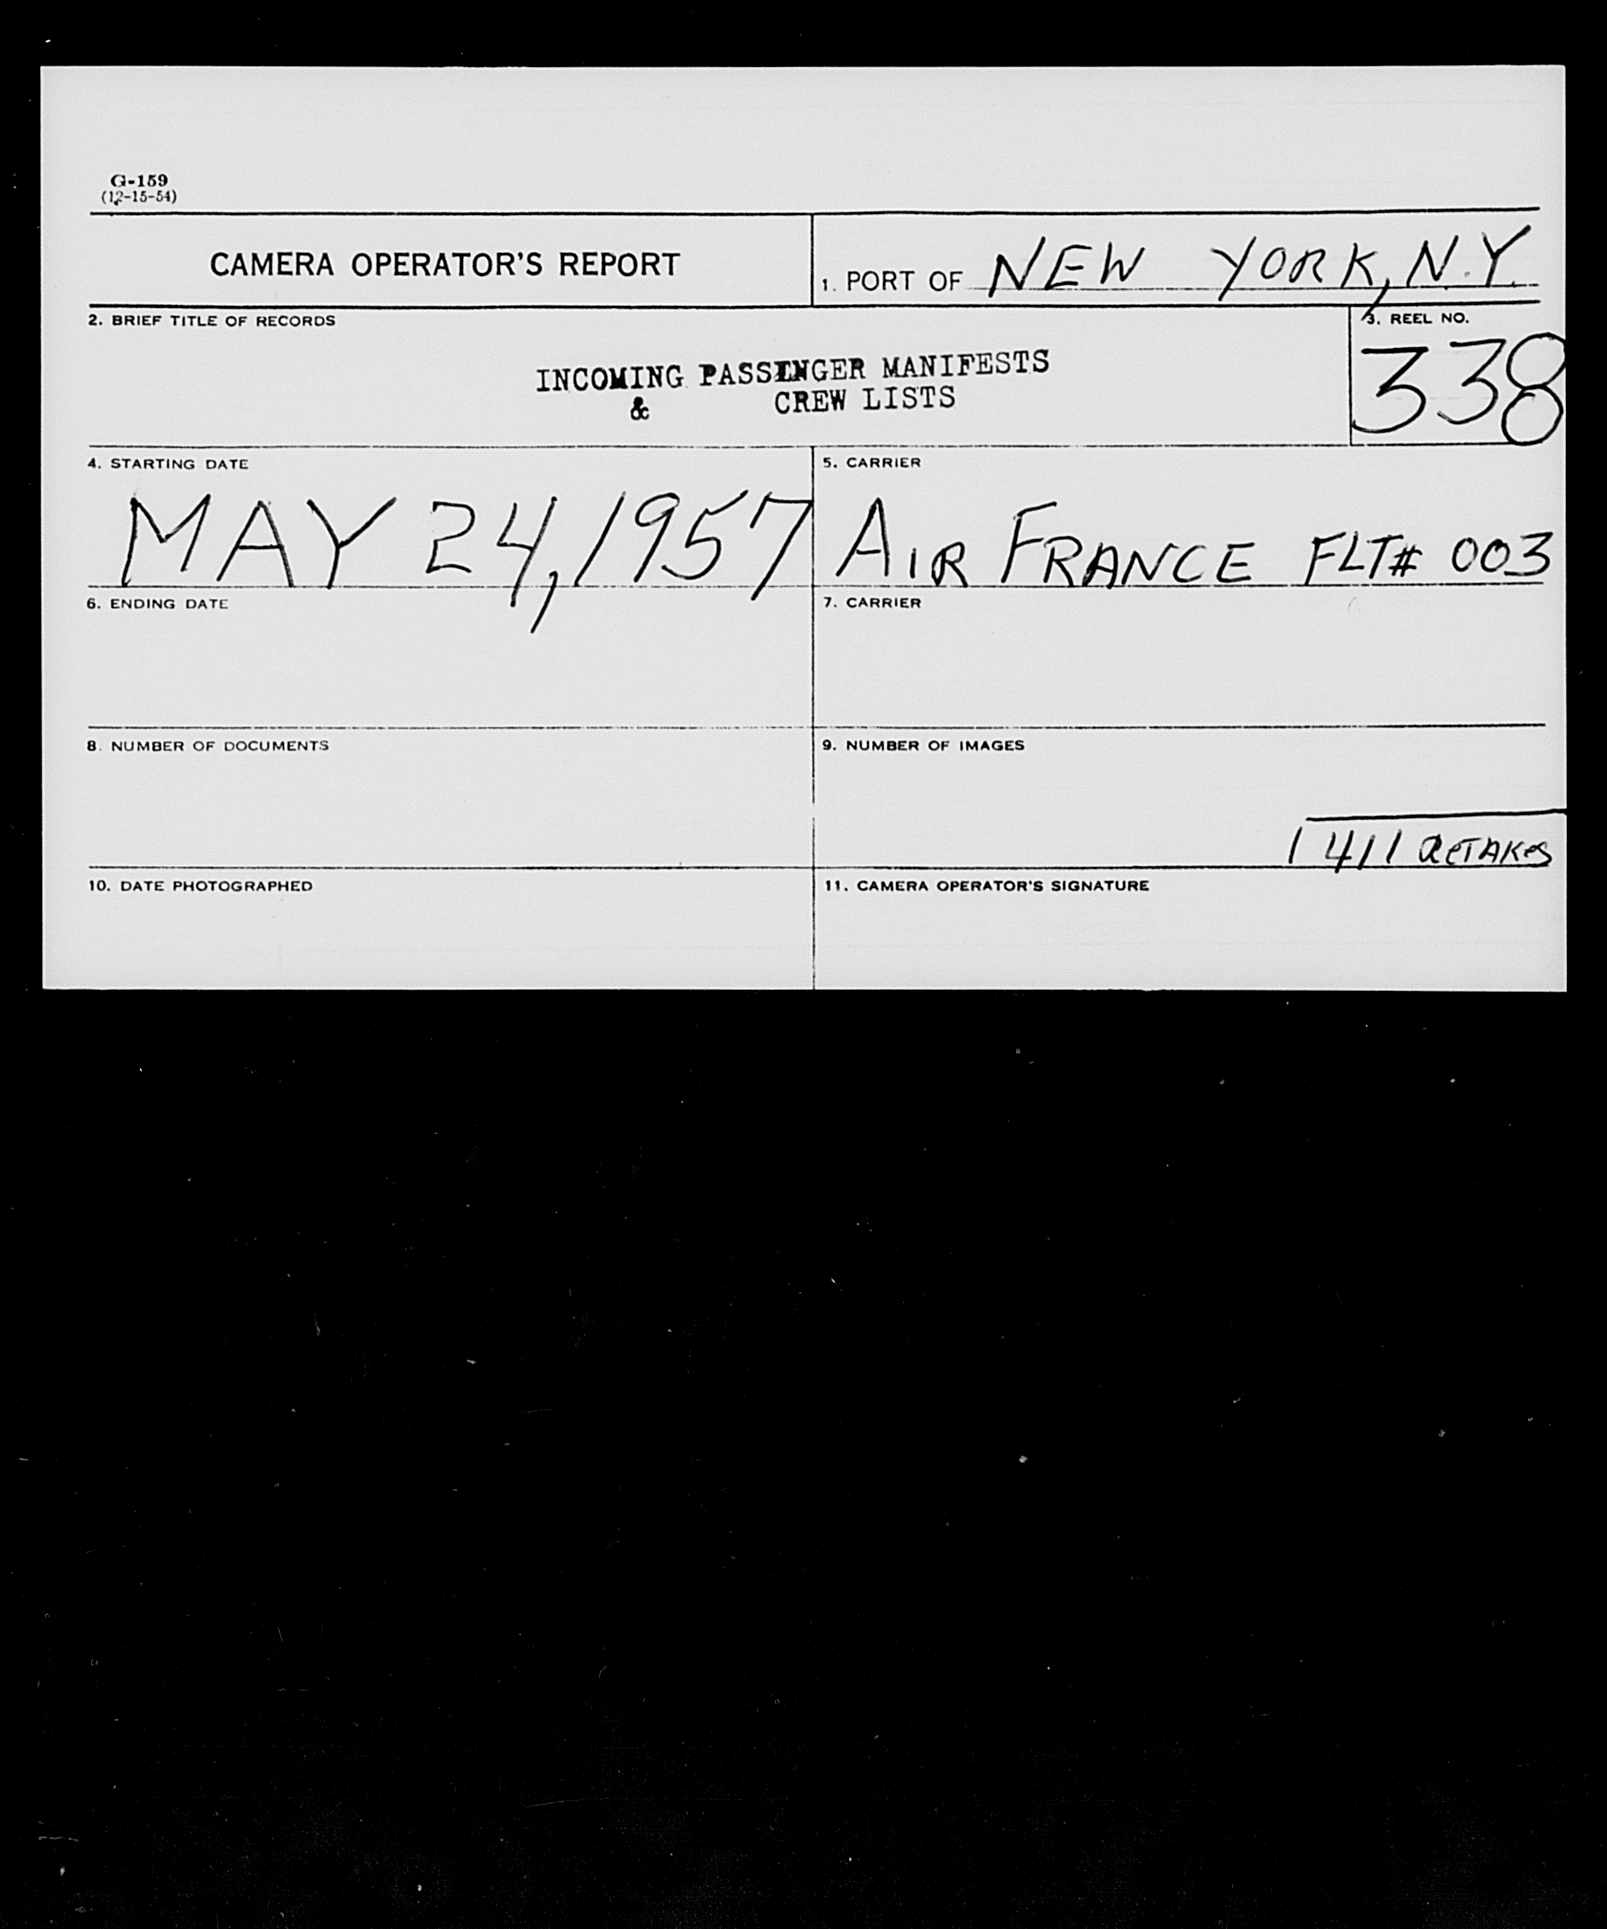 G-159
(12-15-54)
CAMERA OPERATOR'S REPORT
1. PORT OF NEW YORK, N.Y.
2. BRIEF TITLE OF RECORDS
INCOMING PASSENGER MANIFESTS
& CREW LISTS
3. REEL NO.
338
4. STARTING DATE
MAY 24, 1957
5. CARRIER
AIR FRANCE FLT# 003
6. ENDING DATE
7. CARRIER
8. NUMBER OF DOCUMENTS
9. NUMBER OF IMAGES
1411 RETAKES
10. DATE PHOTOGRAPHED
11. CAMERA OPERATOR'S SIGNATURE